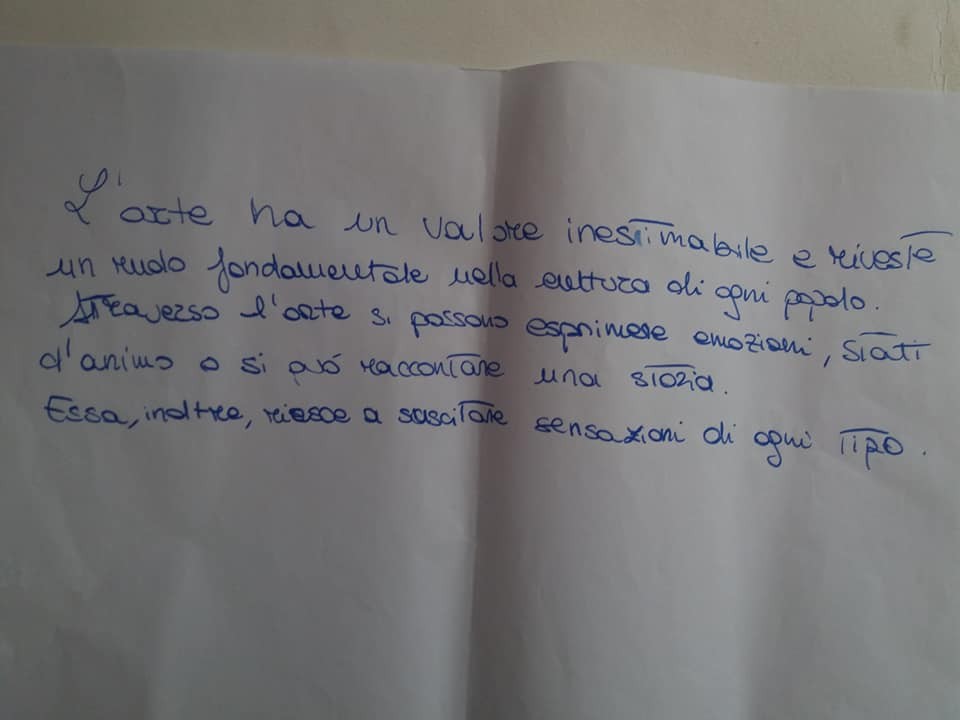 L'arte ha un valore inestimabile e riveste
un ruolo fondamentale nella cultura di ogni popolo.
Attraverso l'arte si possono esprimere emozioni, stati
d'animo o si può raccontare una storia.
Essa, inoltre, riesce a suscitare sensazioni di ogni tipo.